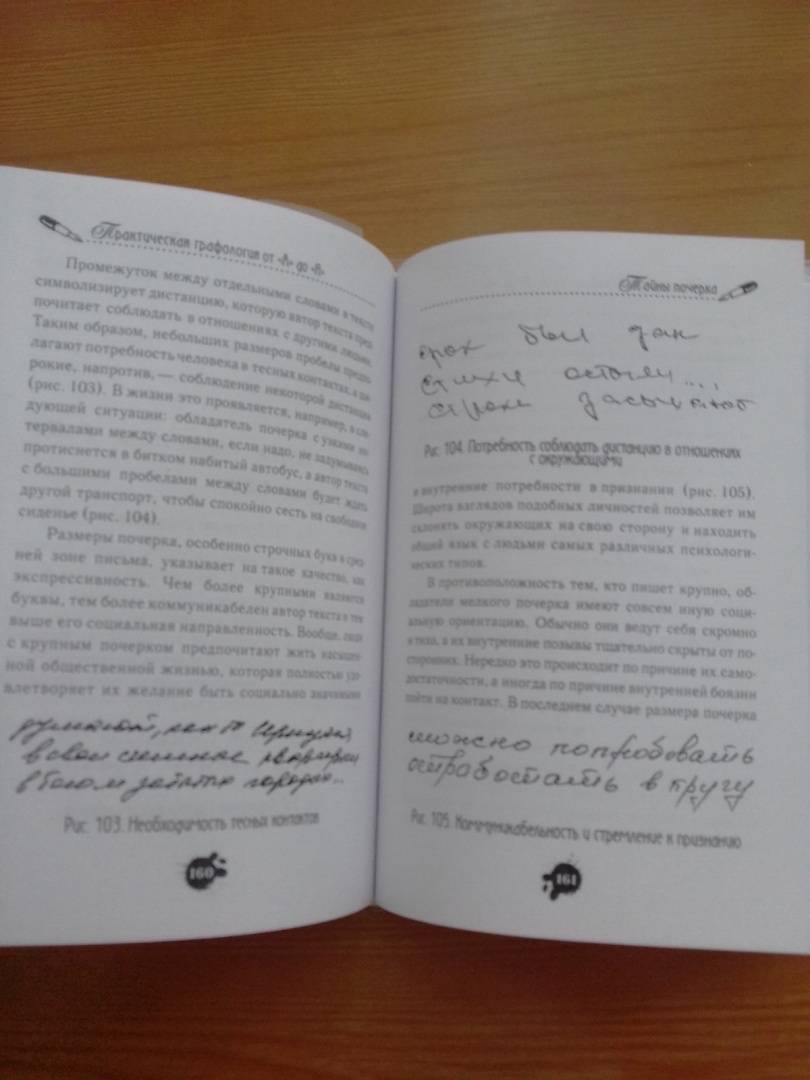 Практическая графология от «А» до «Я»
Промежуток между отдельными словами в тексте
символизирует дистанцию, которую автор текста пред-
почитает соблюдать в отношениях с другими людьми.
Таким образом, небольших размеров пробелы предпо-
лагают потребность человека в тесных контактах, а ши-
рокие, напротив, — соблюдение некоторой дистанции
(рис. 103). В жизни это проявляется, например, в сле-
дующей ситуации: обладатель почерка с узкими ин-
тервалами между словами, если надо, не задумываясь
протиснется в битком набитый автобус, а автор текста
с большими пробелами между словами будет ждать
другой транспорт, чтобы спокойно сесть на свободное
сиденье (рис. 104).
Размеры почерка, особенно строчных букв в сред-
ней зоне письма, указывает на такое качество, как
экспрессивность. Чем более крупными являются
буквы, тем более коммуникабелен автор текста и тем
выше его социальная направленность. Вообще, люди
с крупным почерком предпочитают жить насыщен-
ной общественной жизнью, которая полностью удо-
влетворяет их желание быть социально значимыми
как бы вернулся
в свои
в белом
Рис. 103. Необходимость тесных контактов
160
Тайны почерка
срок был дан
стихи остыли...
строки засыпают
Рис. 104. Потребность соблюдать дистанцию в отношениях
с окружающими
и внутренние потребности в признании (рис. 105).
Широта взглядов подобных личностей позволяет им
склонять окружающих на свою сторону и находить
общий язык с людьми самых различных психологи-
ческих типов.
В противоположность тем, кто пишет крупно, об-
ладатели мелкого почерка имеют совсем иную соци-
альную ориентацию. Обычно они ведут себя скромно
и тихо, а их внутренние позывы тщательно скрыты от по-
сторонних. Нередко это происходит по причине их само-
достаточности, а иногда по причине внутренней боязни
пойти на контакт. В последнем случае размера почерка
можно попробовать
в кругу
Рис. 105. Коммуникабельность и стремление к признанию
161